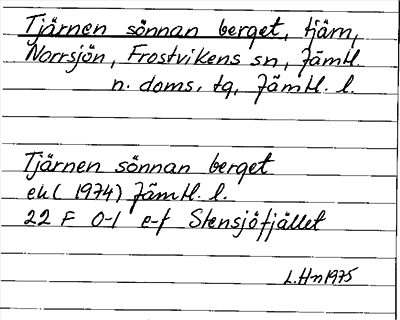 Tjärnen sönnan berget, tjärn,
Norrsjön, Frostvikens sn, Jämtl.
n. doms. tg, Jämtl. l.
Tjärnen sönnan berget
ek ( 1974) Jämtl. l.
22 F 0-1 e-f Stensjöfjället
L.Hn 1975